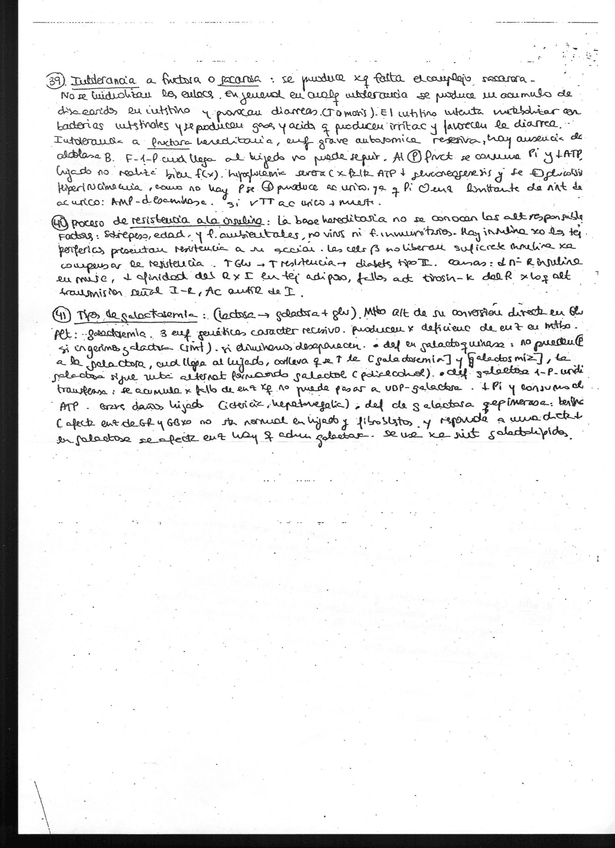 39) Intolerancia a fructosa o sacarosa: se produce xq falta el complejo sacarasa-
No se hidrolizan los enlaces. En general en cualq intolerancia se produce un acumulo de
disacaridos en intestino y provocan diarreas. (osmosis). El intestino intenta metabolizar con
bacterias intestinales y se producen gases y acids q producen irritac y favorecen la diarrea.
Intolerancia a fructosa hereditaria, enf grave autosomica recesiva, hay ausencia de
aldolasa B. F-1-P cuando llega al hígado no puede seguir. Al (P) fruct se consume Pi y ↓ATP
hígado no realiza bien f(x). hipoglucemia severa (x falta ATP ↓ gluconeogenesis y se
Hiperuricemia, como no hay P se produce ac urico. ya q Pi es limitante de
ac urico: AMP-desaminasa. si ↑↑ ac urico → muerte.
40) Proceso de resistencia a la insulina: la base hereditaria no se conocen los alt responsable
Factores: Sobrepeso, edad. y f. ambientales, no virus ni f. inmunitarios. Hay insulina xo los tej
perifericos presentan resistencia a su accion. las cels β no liberan suficiente insulina xa
compensar la resistencia. ↑Glu → ↑resistencia → diabetes tipo II. Causas: ↓ nº R insulina
en musc, ↓ afinidad del R x I en tej adiposo, fallos act tirosin-k del R x lo q alt
transmision señal I-R, AC anti R de I.
41) Tipos de galactosemia: (lactosa → galactosa + glu). Mtbo alt de su conversión directa en Glu
Alt: galactosemia. 3 enf genéticas caracter recesivo. producen x deficienc de enz en mtbo.
si ingerimos galactosa (sint). si disminuimos desaparecen. • def en galactoquinasa: no pueden (P)
a la galactosa, cuando llega al hígado, conlleva q se ↑ la [galactosemia] y [galactosuria], la
galactosa sigue ruta alternat formando galactitol (polialcohol). • def galactosa 1-P-uridil
transferasa: se acumula x fallo de enz xq no puede pasar a UDP-galactosa. ↓Pi y consumo de
ATP. graves daños hígado (ictericia, hepatomegalia). • def de galactosa epimerasa:
(afecta enz de GR y GB xo no sta normal en hígado y fibroblastos y responde a una dieta ↓
en galactosa se afecta enz hay q admin galactosa. se usa xa sint galactolípidos.